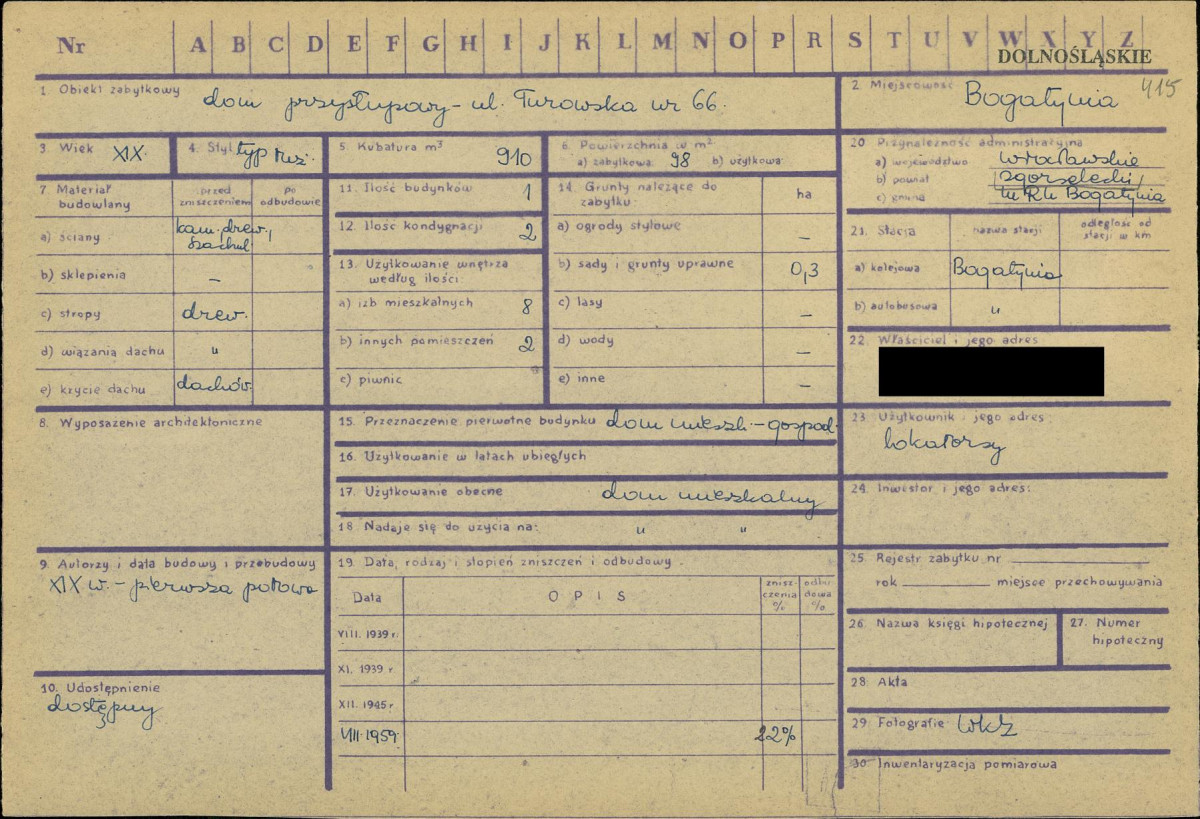 Nr A B C D E F G H I J K L M N O P R S T U V W X Y Z
DOLNOŚLĄSKIE
415
1. Obiekt zabytkowy dom przysłupowy - ul. Turowska nr 66.
2. Miejscowość Bogatynia
3. Wiek XIX.
4. Styl typ
5. Kubatura m³ 910
6. Powierzchnia w m²
a) zabytkowa: 98 b) użytkowa:
7. Materiał budowlany
przed zniszczeniem
po odbudowie
a) ściany kam. drew., szachul
b) sklepienia –
c) stropy drew.
d) wiązania dachu "
e) krycie dachu dachów.
8. Wyposażenie architektoniczne
9. Autorzy i data budowy i przebudowy
XIX w. - pierwsza połowa
10. Udostępnienie
dostępny
11. Ilość budynków 1
12. Ilość kondygnacji 2
13. Użytkowanie wnętrza według ilości:
a) izb mieszkalnych 8
b) innych pomieszczeń 2
c) piwnic
14. Grunty należące do zabytku: ha
a) ogrody stylowe –
b) sady i grunty uprawne 0,3
c) lasy –
d) wody –
e) inne –
15. Przeznaczenie pierwotne budynku dom mieszk. - gospod.
16. Użytkowanie w latach ubiegłych
17. Użytkowanie obecne dom mieszkalny
18. Nadaje się do użycia na: " "
19. Data, rodzaj i stopień zniszczeń i odbudowy.
Data
OPIS
zniszczenia %
odbudowa %
VIII. 1939 r.
XI. 1939 r
XII. 1945 r
VIII. 1959. 22%
20. Przynależność administracyjna
a) województwo wrocławskie
b) powiat zgorzelecki
c) gmina Bogatynia
21. Stacja nazwa stacji odległość od stacji w km
a) kolejowa Bogatynia
b) autobusowa "
22. Właściciel i jego adres
23. Użytkownik i jego adres:
lokatorzy
24. Inwestor i jego adres:
25. Rejestr zabytku nr
rok miejsce przechowywania
26. Nazwa księgi hipotecznej
27. Numer hipoteczny
28. Akta
29. Fotografie WKZ
30. Inwentaryzacja pomiarowa